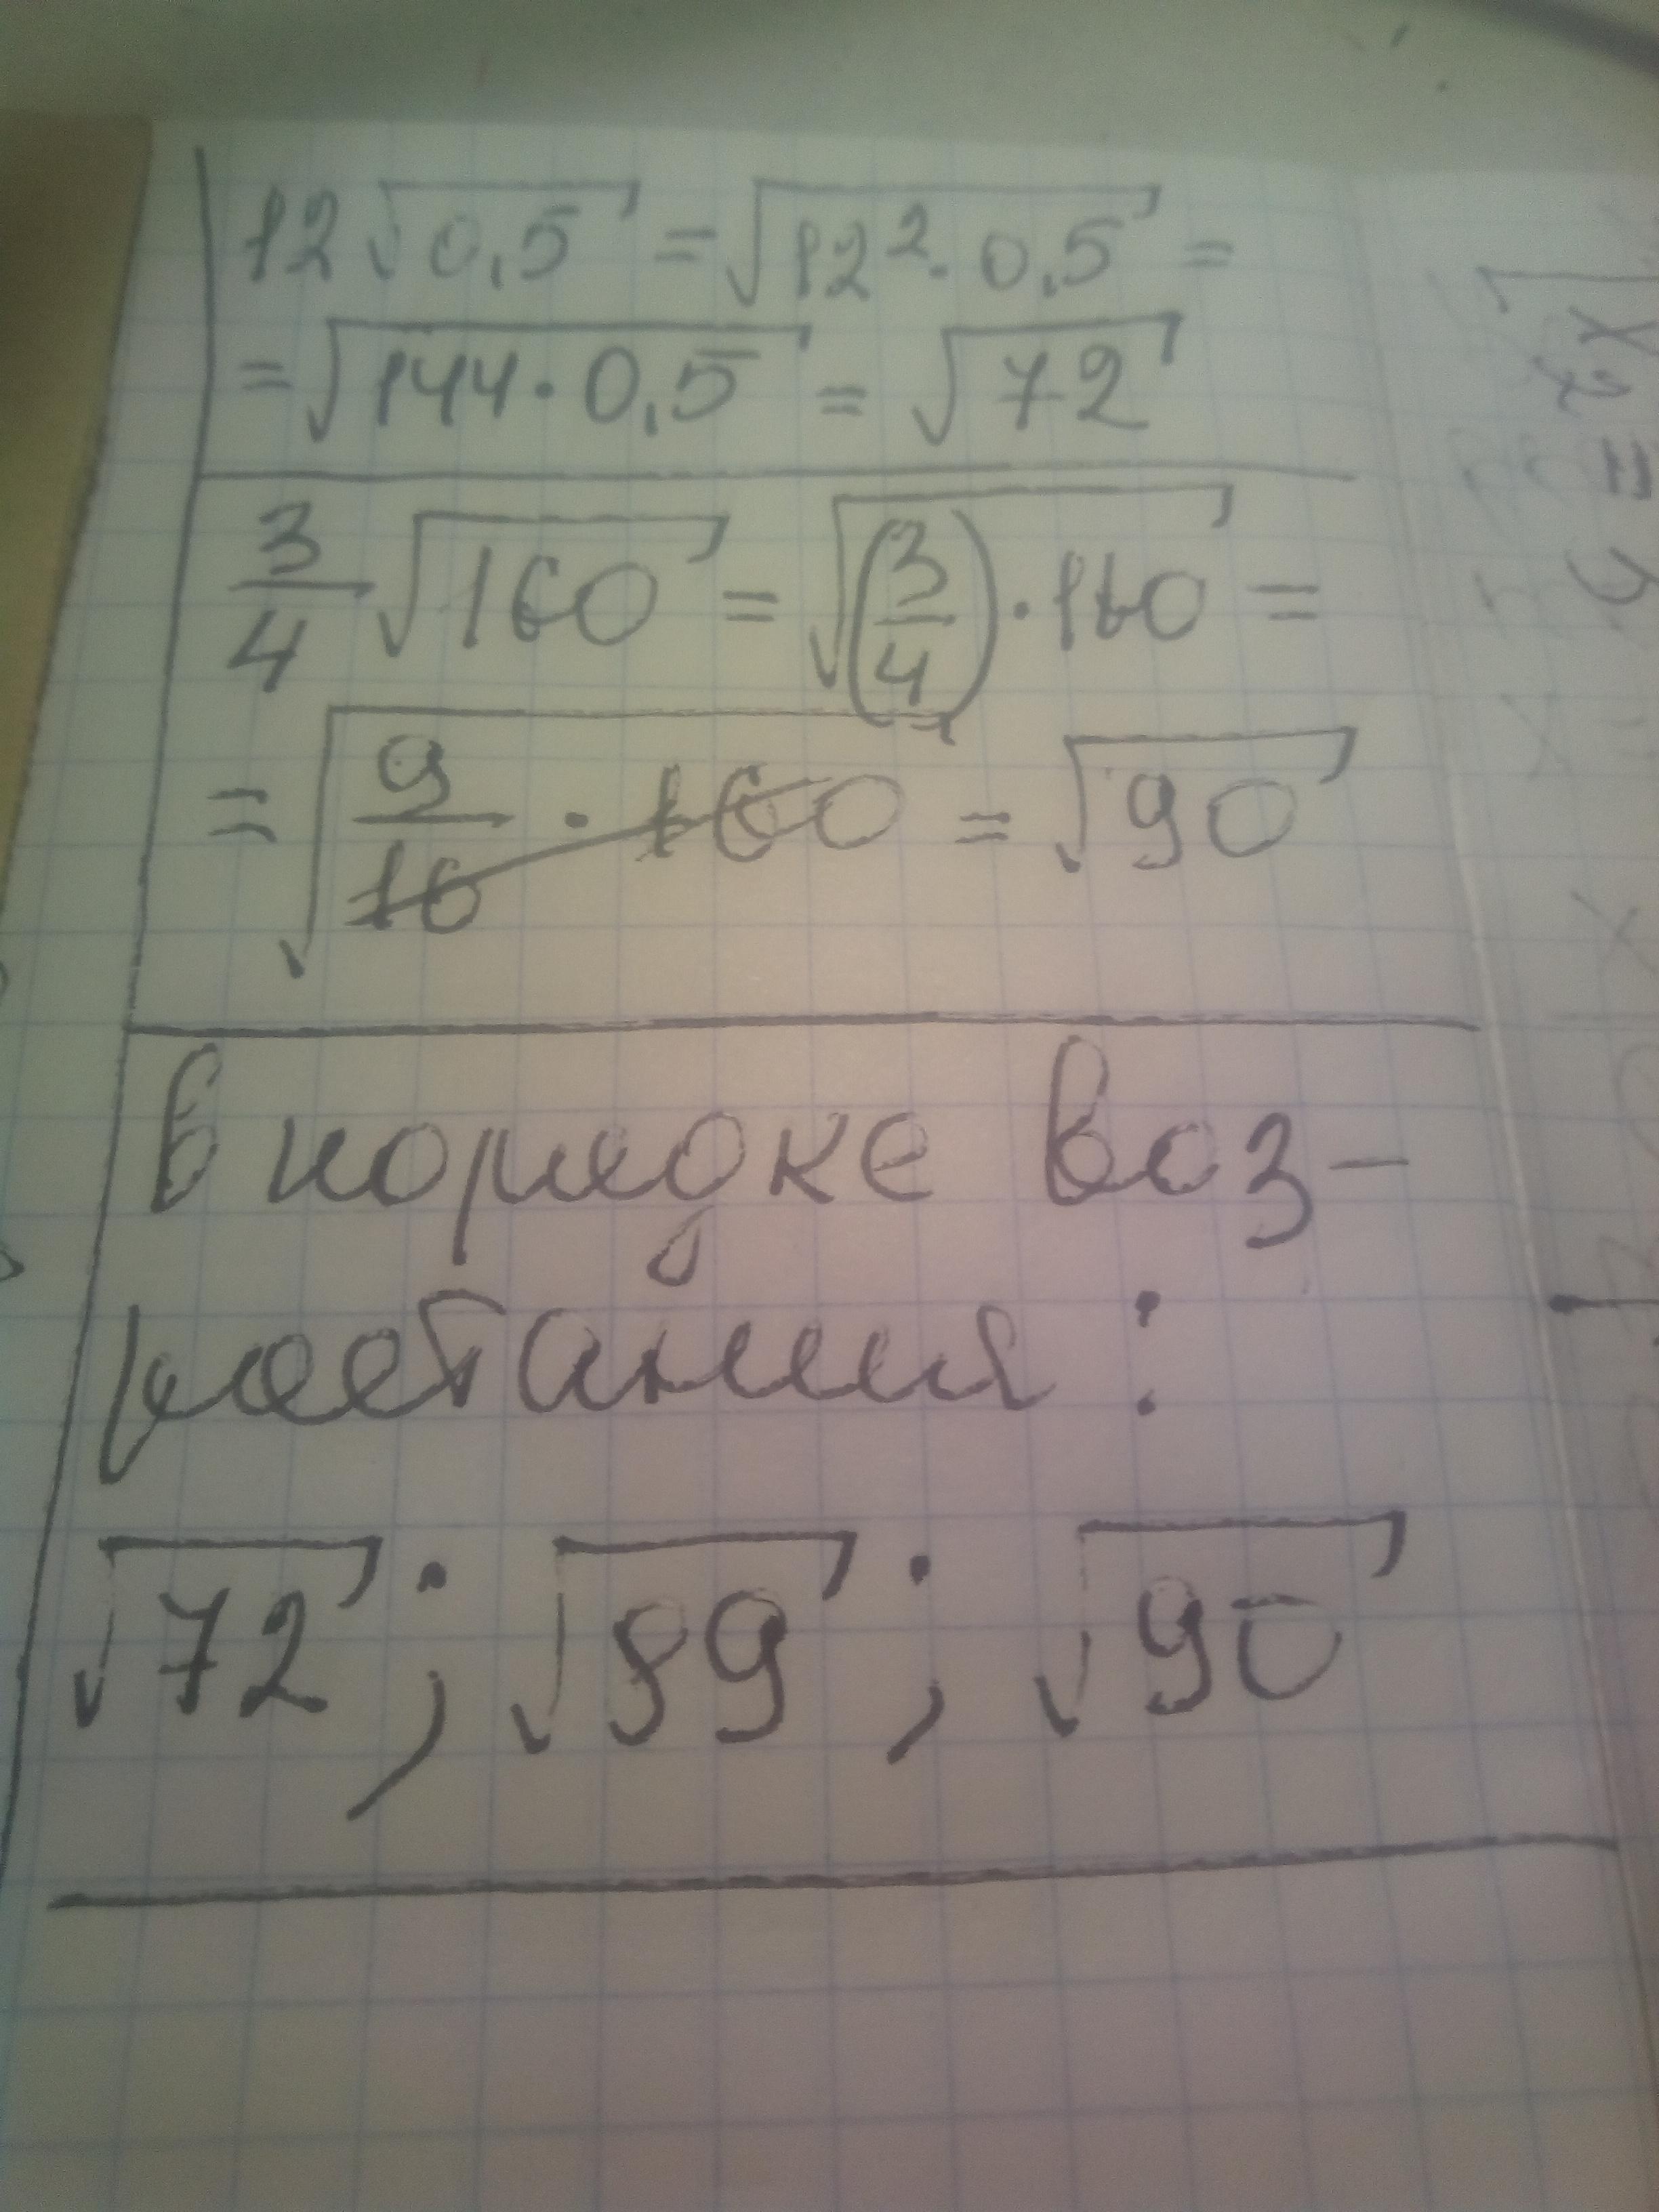 12√0,5 = √12²·0,5 =
= √144·0,5 = √72
3/4 √160 = √(3/4)·160 =
= √9/16 · 160 = √90
в порядке воз-
растания:
√72; √89; √90